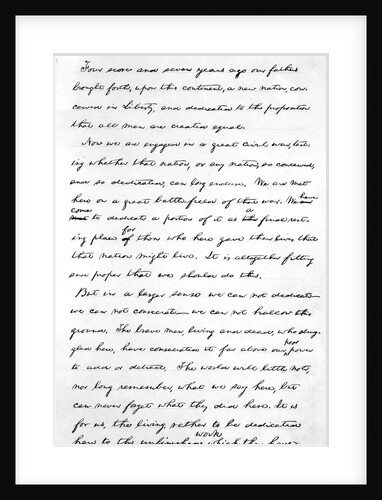 Four score and seven years ago our fathers
brought forth, upon this continent, a new nation, con-
ceived in Liberty, and dedicated to the proposition
that all men are created equal.
Now we are engaged in a great civil war, test-
ing whether that nation, or any nation, so conceived,
and so dedicated, can long endure. We are met
here on a great battle-field of that war. We have
come to dedicate a portion of it as a final rest-
ing place for those who here gave their lives that
that nation might live. It is altogether fitting
and proper that we should do this.
But in a larger sense we can not dedicate—
we can not consecrate— we can not hallow this
ground. The brave men, living and dead, who strug-
gled here, have consecrated it far above our poor power
to add or detract. The world will little note,
nor long remember, what we say here, but
can never forget what they did here. It is
for us, the living, rather to be dedicated
here to the unfinished work which they have